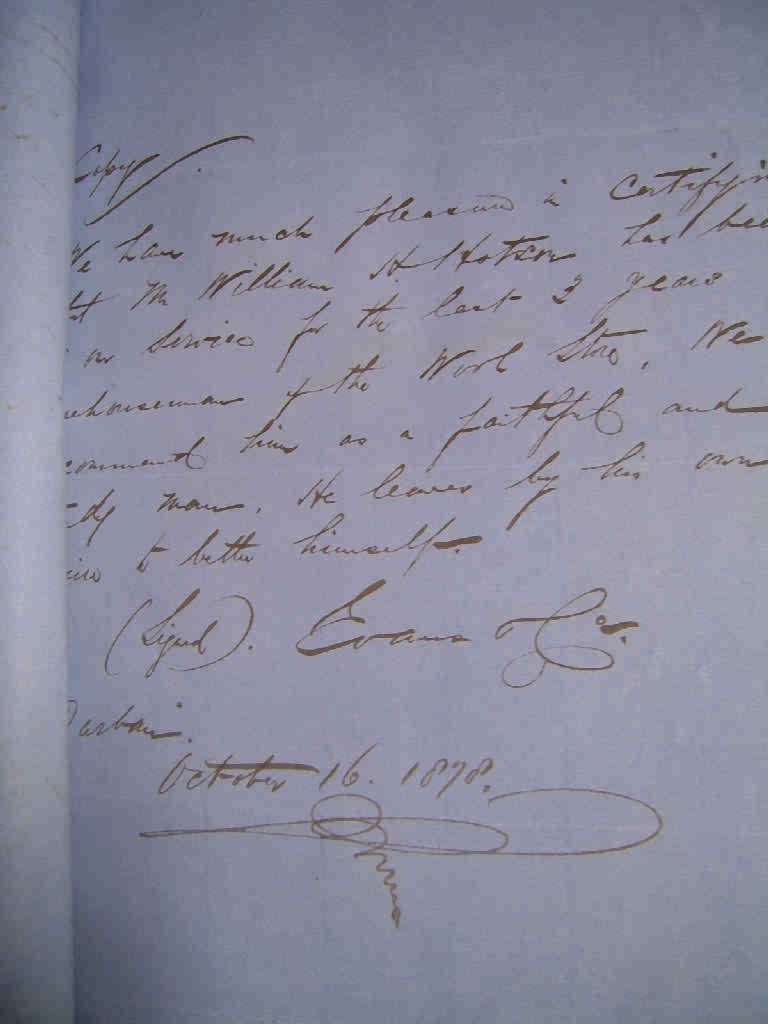 Copy.
We have much pleasure in certifyin
at Mr William H Hotson has bee
our service for the last 3 years
ehouseman of the Work Store. We
commend him as a faithful and
dy man. He leaves by his own
to better himself.
(Signed). Evans & Co.
October 16. 1878.